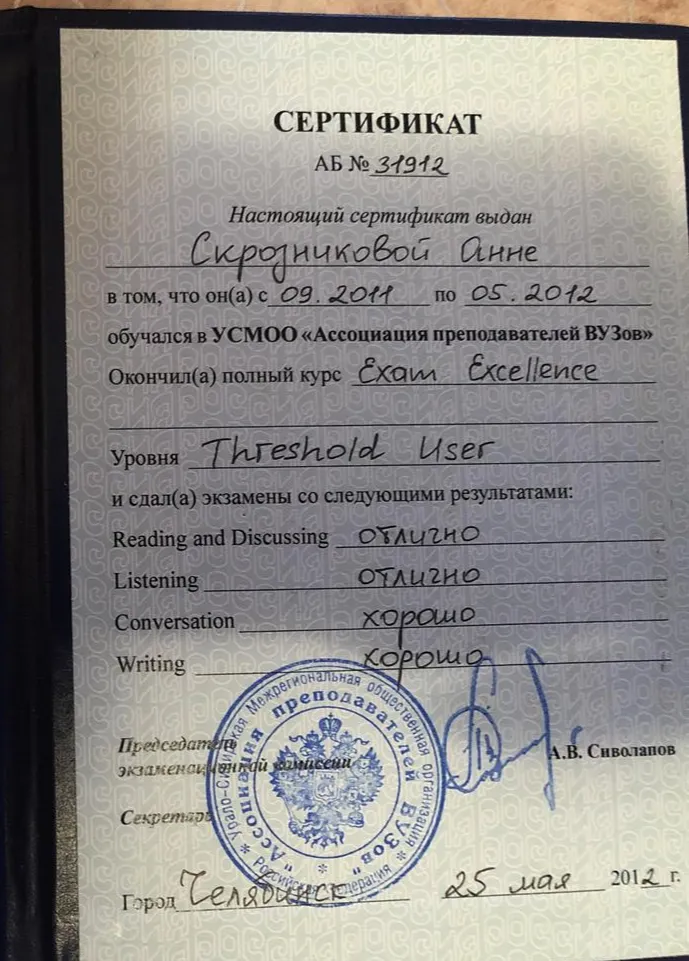 СЕРТИФИКАТ
АБ № 31912
Настоящий сертификат выдан
Скрозниковой Анне
в том, что он(а) с 09.2011 по 05.2012
обучался в УСМОО «Ассоциация преподавателей ВУЗов»
Окончил(а) полный курс Exam Excellence
Уровня Threshold User
и сдал(а) экзамены со следующими результатами:
Reading and Discussing отлично
Listening отлично
Conversation хорошо
Writing хорошо
Урало-Сибирская Межрегиональная общественная организация
"Ассоциация преподавателей Вузов"
Российская Федерация
Председатель
экзаменационной комиссии А.В. Сиволапов
Секретарь
Город Челябинск 25 мая 2012 г.